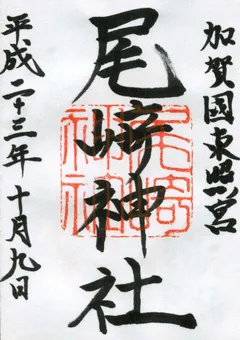 加賀國東照宮
尾﨑神社
尾崎神社
平成二十三年十月九日